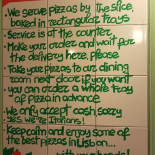 - We serve pizzas by the slice,
baked in rectangular trays
- Service is at the counter.
- Make your order and wait for
the delivery here, please
- Take your pizzas to our dining
room next door if you want
- you can order a whole tray
of pizza in advance
- We only accept cash, sorry
yes we're Italians!
- Keep calm and enjoy some of
the best pizzas in Lisbon...
with your hands!